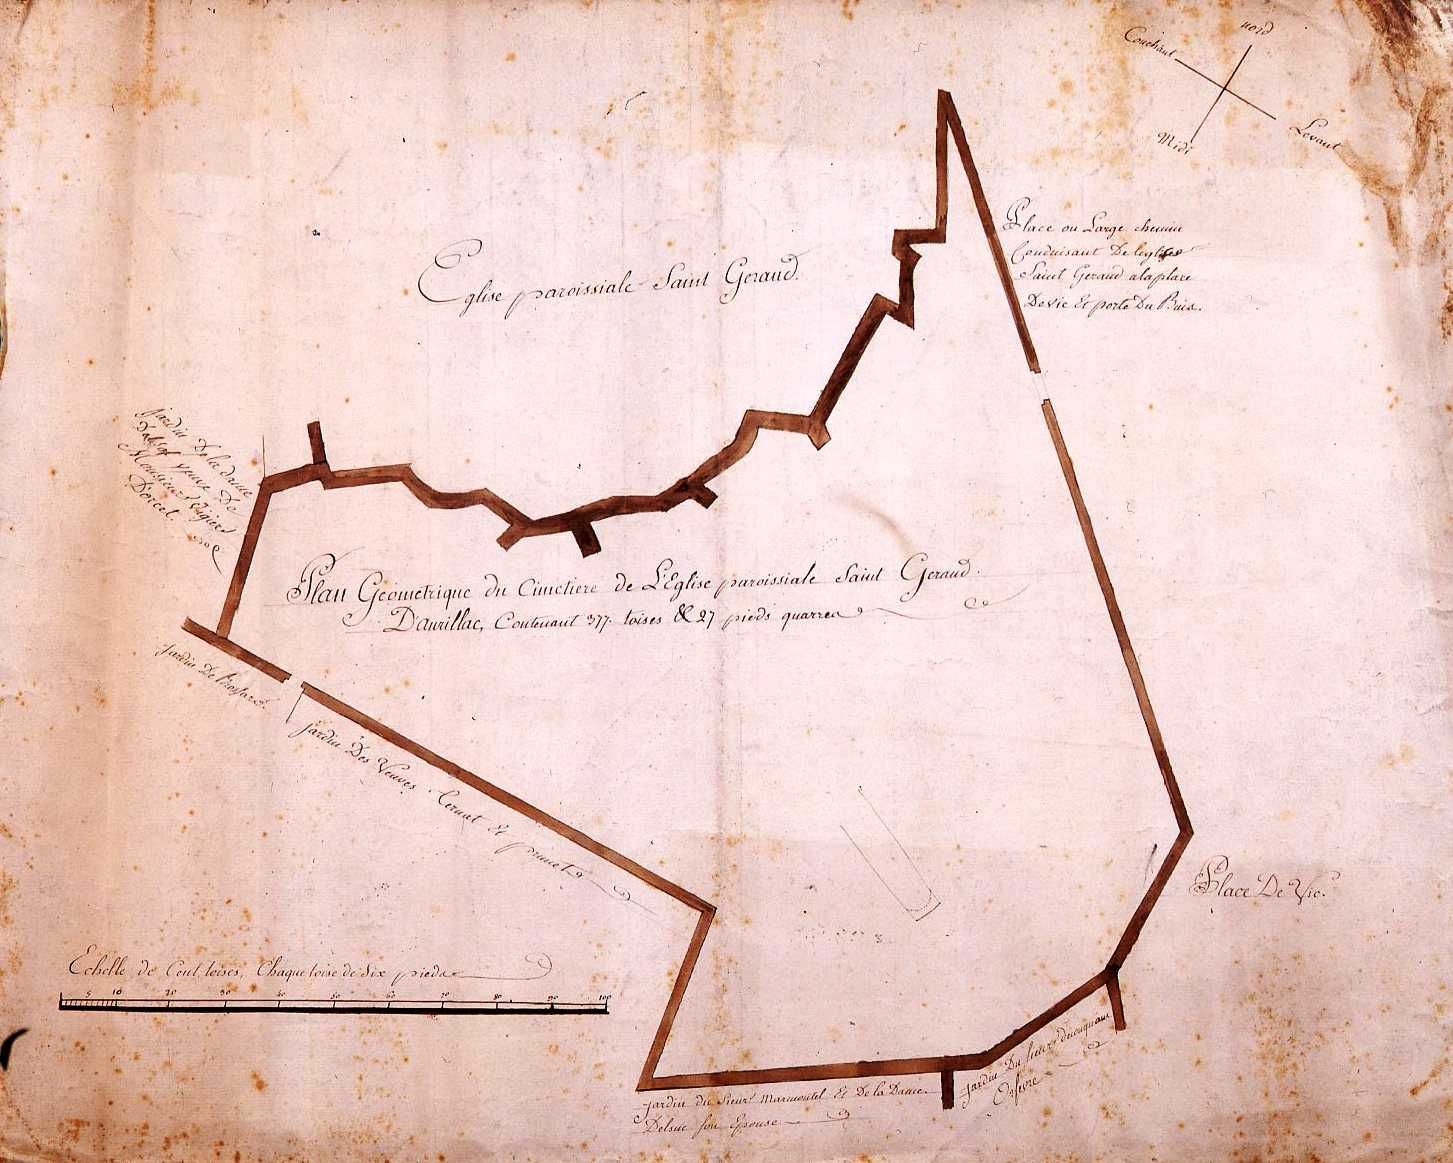 nord
Couchant
Levant
Midi
Place ou Large chemin
Conduisant De leglise
Saint Geraud a la place
De vic Et porte Du Buis.
Eglise paroissiale Saint Geraud.
Jardin De la dame
veuve De
Monsieur
Plan Géometrique du Cimetiere de L'Eglise paroissiale Saint Geraud.
D'aurillac, Contenant 377. toises & 27 pieds quarrea
Jardin De
Jardin Des Veuves et
Place De Vic.
Echelle de Cent toises, Chaque toise de Six pieds
5 10 20 30 40 50 60 70 80 90 100
Jardin Du Sieur
Orfevre
Jardin du Sieur Marmontel Et De la Dame
Delsuc son Epouse